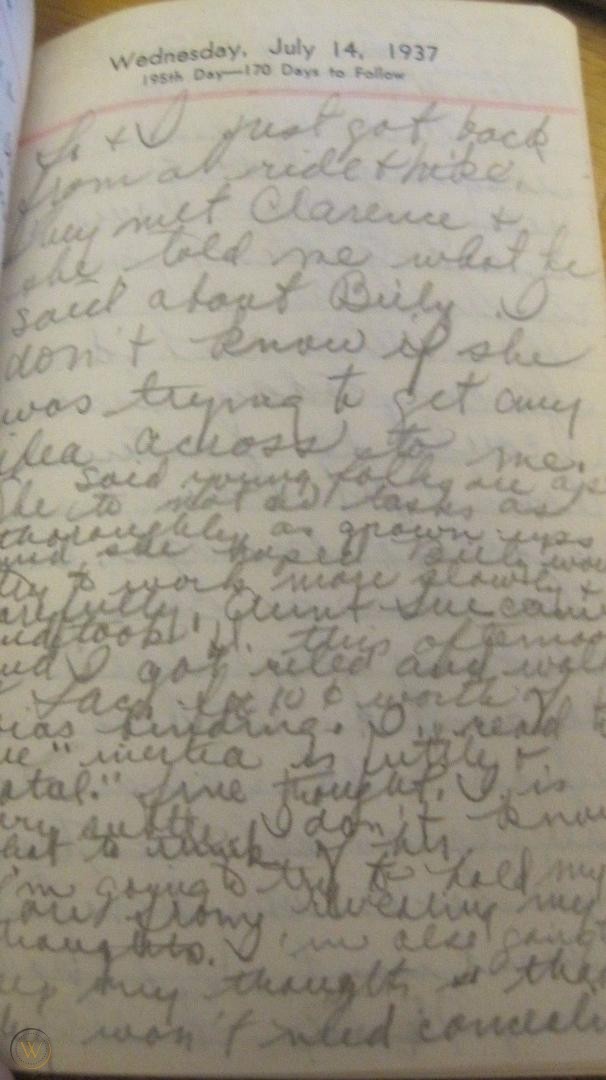 Wednesday, July 14, 1937
195th Day—170 Days to Follow
& I just got back
from a ride & hike.
They met Clarence &
she told me what he
said about Billy. I
don't know if she
was trying to get any
idea across to me.
He said young folks are ap
to not do tasks as
thoroughly as grown ups
and she hoped Billy wou
try to work more slowly &
carefully. Aunt Sue came
and took this afternoo
and I got and walk
for 10¢ worth of
bias binding. I read
"inertia is utterly
fatal." fine thought. is
very subtle. I don't know
what to think of
I'm going to try to hold my
from revealing my
thoughts. I'm also going
my thoughts so that
won't need conceali
W